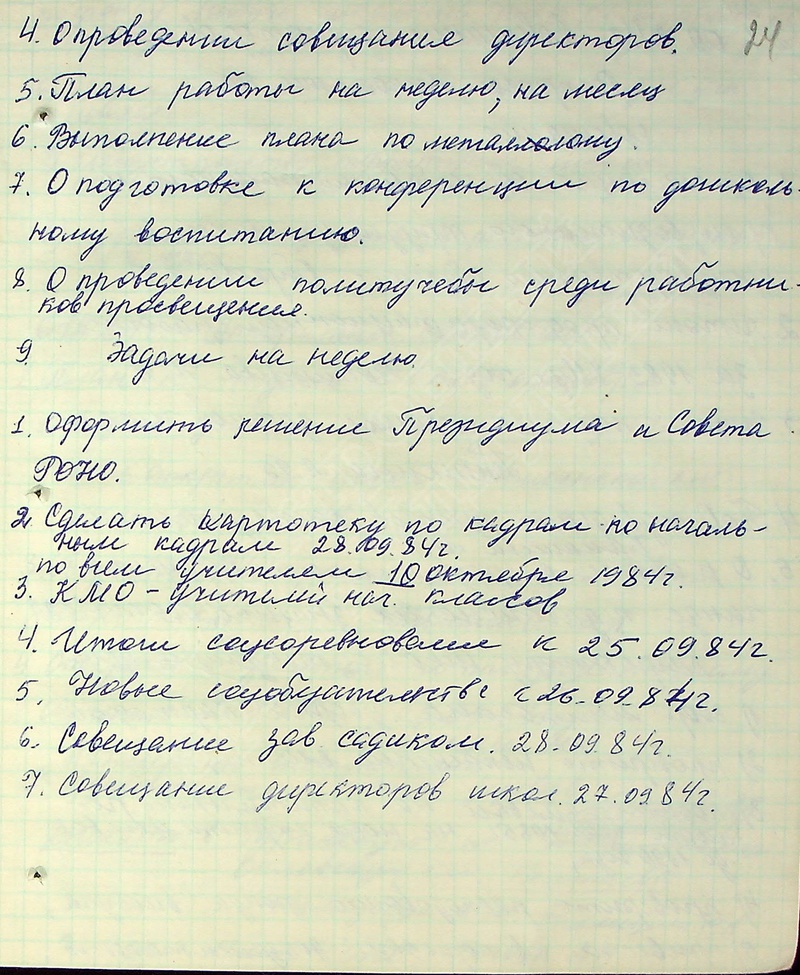 24
4. О проведении совещания директоров.
5. План работы на неделю, на месяц
6. Выполнение плана по металлолому.
7. О подготовке к конференции по дошколь-
ному воспитанию.
8. О проведении политучебы среди работни-
ков просвещения.
9 Задачи на неделю.
1. Оформить решение Президиума и Совета
РОНО.
2. Сделать картотеку по кадрам по началь-
ным кадрам 28.09.84г.
по всем учителем 10 октября 1984г.
3. КМО - учителей нач. классов
4. Итоги соцсоревнования к 25.09.84г.
5. Новые соцобязательства с 26.09.84г.
6. Совещание зав садиком. 28.09.84г.
7. Совещание директоров школ. 27.09.84г.